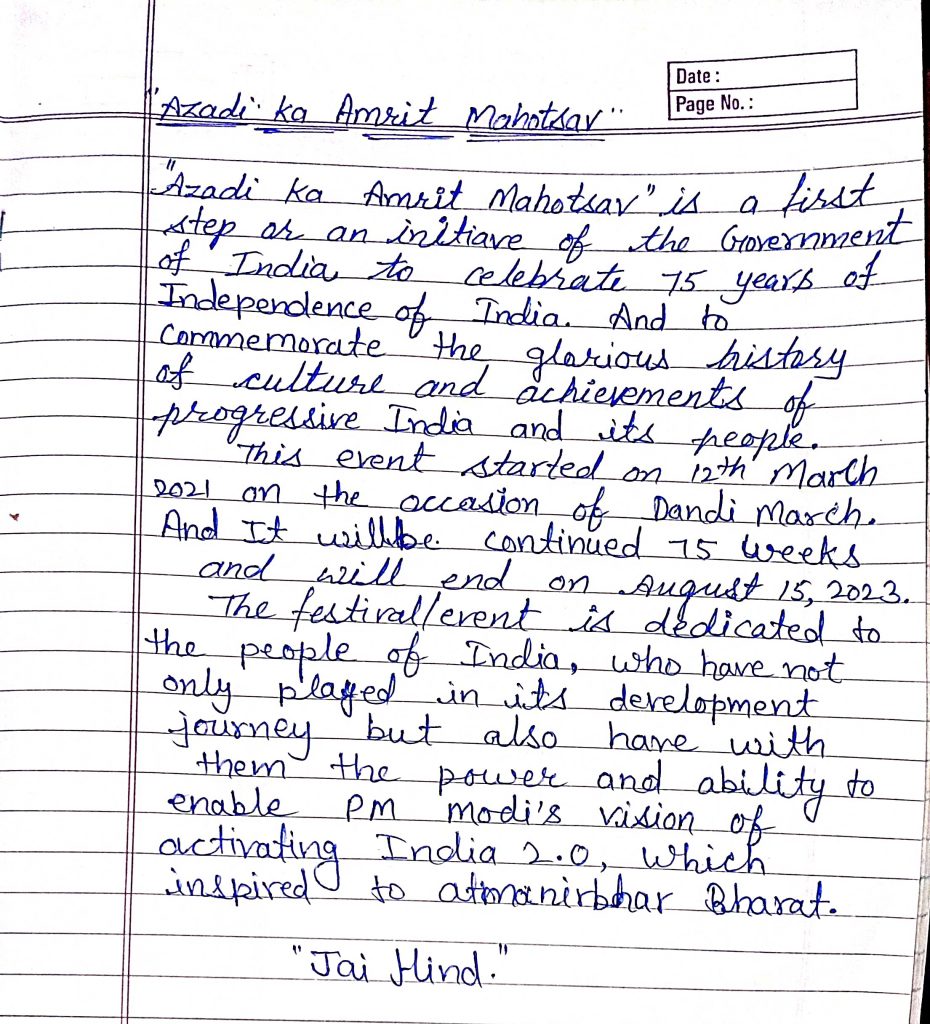 Date :
Page No. :
"Azadi ka Amrit Mahotsav"
"Azadi ka Amrit Mahotsav" is a first
step or an initiave of the Government
of India, to celebrate 75 years of
Independence of India. And to
Commemorate the glorious history
of culture and achievements of
progressive India and its people.
This event started on 12th March
2021 on the occasion of Dandi March.
And It willbe continued 75 weeks
and will end on August 15, 2023.
The festival/event is dedicated to
the people of India, who have not
only played in its development
journey but also have with
them the power and ability to
enable PM Modi's vision of
activating India 2.0, which
inspired to atmanirbhar Bharat.
"Jai Hind."